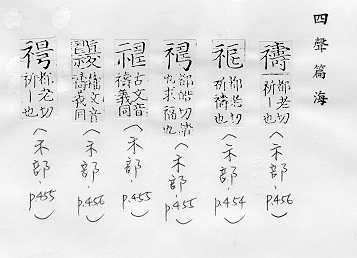 四聲篇海
禱 都老切祈丨也（示部，p.456）
都老切祈禱也（示部，p.454）
都皓切禱也求福也（示部，p.455）
古文音禱義同（示部，p.455）
籀文音禱義同（示部，p.456）
都老切祈丨也（示部，p.455）